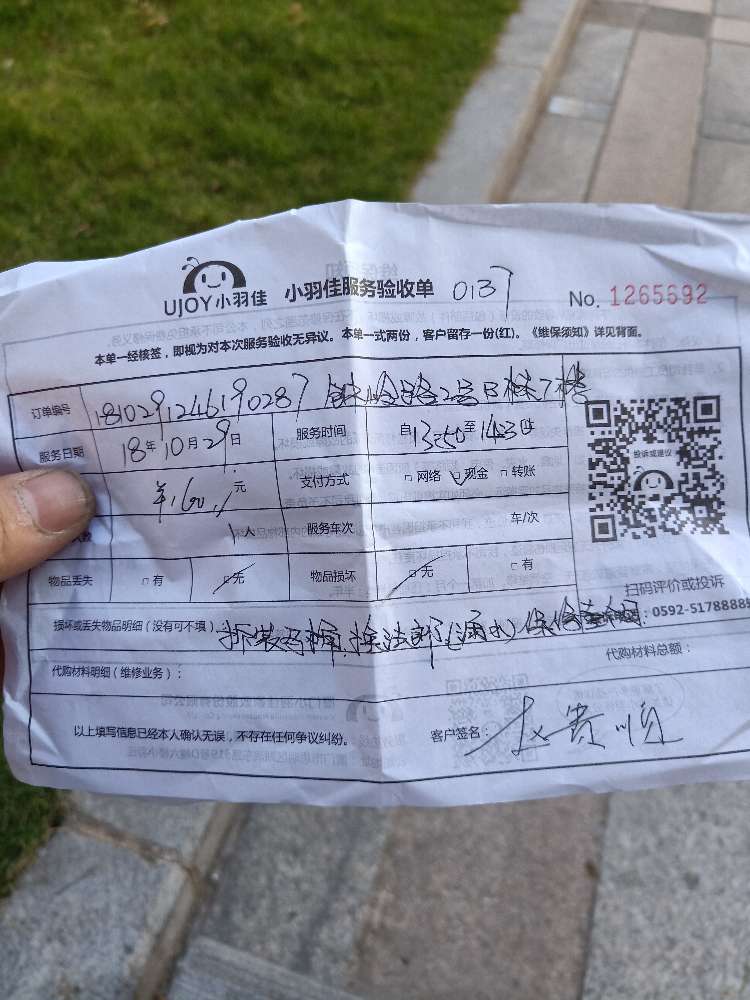 UJOY小羽佳 小羽佳服务验收单 0137 No. 1265692
本单一经核签，即视为对本次服务验收无异议。本单一式两份，客户留存一份(红)。《维保须知》详见背面。
订单编号 1810291246190287 铁岭路2号B栋7楼
服务日期 18年10月29日 服务时间 自13:50至14:30
¥160 元 支付方式 □网络 □现金 □转账
人数 1人 服务车次 车/次
投诉或建议
物品丢失 □有 □无 物品损坏 □无 □有
扫码评价或投诉
损坏或丢失物品明细（没有可不填） 拆装马桶，换法郎(漏水) 保修 : 0592-5178888
代购材料明细（维修业务）： 代购材料总额：
以上填写信息已经本人确认无误，不存在任何争议纠纷。 客户签名： 赵贵顺